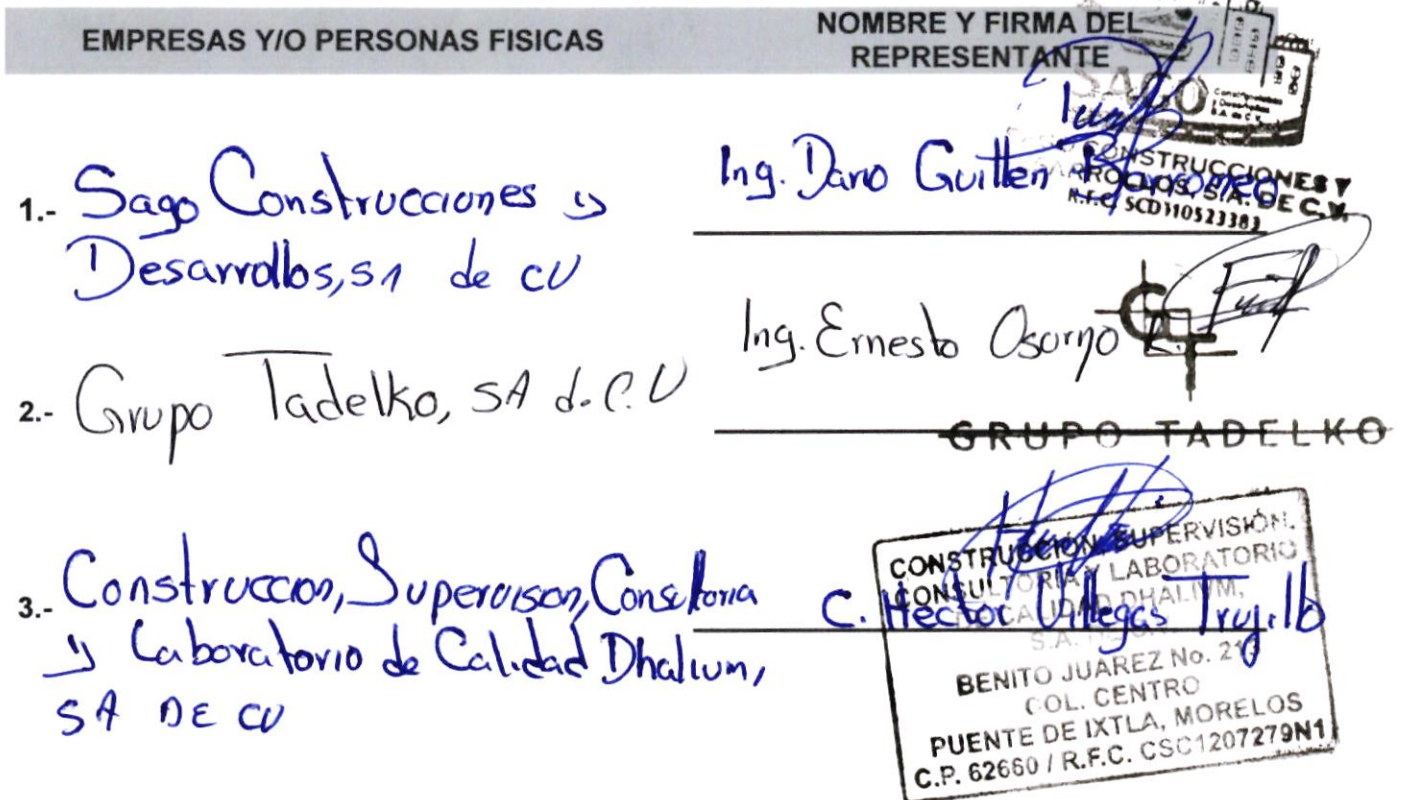 EMPRESAS Y/O PERSONAS FISICAS
NOMBRE Y FIRMA DEL
REPRESENTANTE
SAGO
1.- Sago Construcciones y
Desarrollos, SA de CV
Ing. Dario Guillen
CONSTRUCCIONES Y
S.A. DE C.V.
R.F.C. SCD110523383
2.- Grupo Tadelko, SA de C.V
Ing. Ernesto Osorno
GRUPO TADELKO
3.- Construccion, Supervision, Consultoria
y Laboratorio de Calidad Dhalium,
SA DE CV
C. Hector Villegas Trujillo
CONSTRUCCIÓN, SUPERVISIÓN,
CONSULTORIA Y LABORATORIO
DE CALIDAD DHALIUM,
S.A. DE C.V.
BENITO JUAREZ No.
COL. CENTRO
PUENTE DE IXTLA, MORELOS
C.P. 62660 / R.F.C. CSC1207279N1